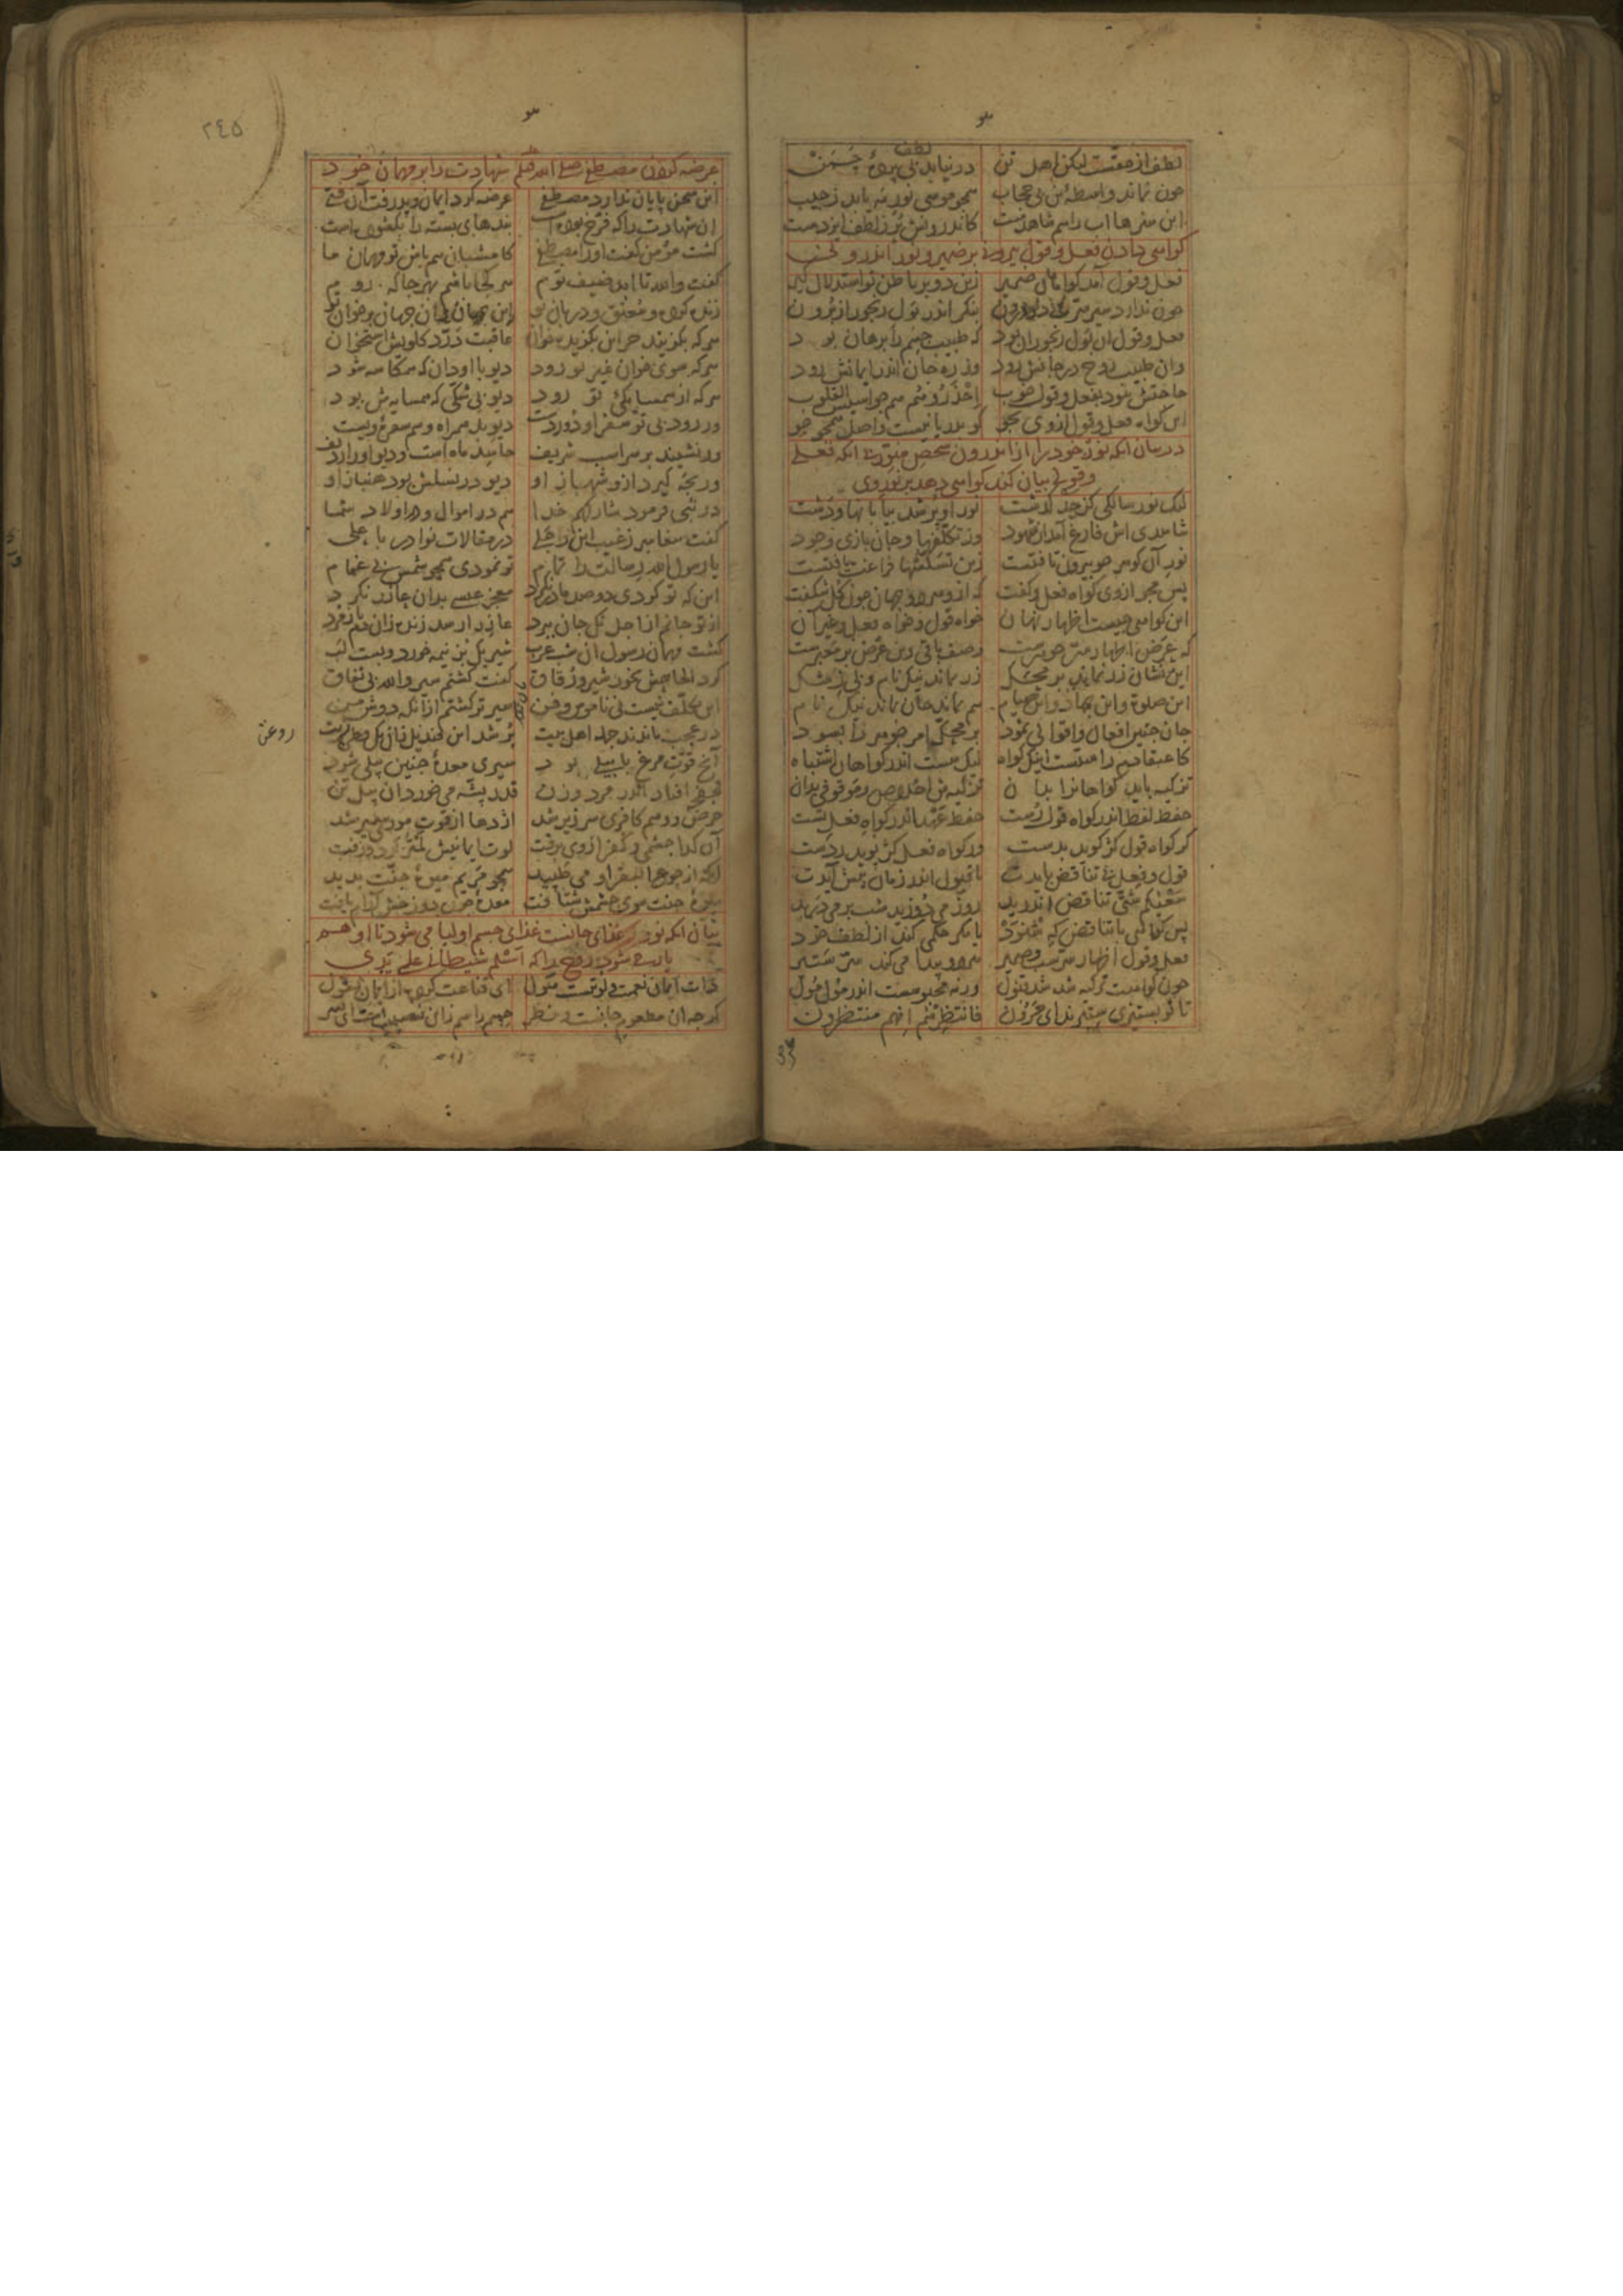 لطف از حقست لیکن اهل تن درنیابد لطف بی پردهٔ چمن
چون نماند واسطهٔ تن بی حجاب همچو موسی نور مه یابد ز جیب
این هنرها آب را هم شاهدست کاندرونش پر ز لطف ایزدست
گواهی دادن فعل و قول بیرونی بر ضمیر و نور اندرونی
فعل و قول آمد گواهان ضمیر زین دو بر باطن تو استدلال گیر
چون ندارد سیر سرت در درون بنگر اندر بول رنجور از برون
فعل و قول آن بول رنجوران بود که طبیب جسم را برهان بود
وان طبیب روح در جانش رود وز ره جان اندر ایمانش رود
حاجتش نبود بفعل و قول خوب احذروهم هم جواسیس القلوب
این گواه فعل و قول از وی بجو کو بدریا نیست واصل همچو جو
در بیان آنکه نور خود را از اندرون شخص منور بی آنکه فعلی
و قولی بیان کند گواهی دهد بر نور وی
لیک نور سالکی کز حد گذشت نور او پر شد بیابانها و دشت
شاهدی اش فارغ آمد از شهود وز تکلفها و جان بازی و جود
نور آن گوهر چو بیرون تافتست زین تسلسها فراغت یافتست
پس مجو از وی گواه فعل و گفت که ازو هر دو جهان چون گل شکفت
این گواهی چیست اظهار نهان خواه قول و خواه فعل و غیر آن
که عرض اظهار سر جوهرست وصف باقی وین عرض بر معبرست
این نشان زر نماند بر محک زر بماند نیک نام و بی ز شک
این صلوة و این جهاد و این صیام هم نماند جان بماند نیک نام
جان چنین افعال و اقوالی نمود بر محک امر جوهر را بسود
کاعتقادم راستست اینک گواه لیک هست اندر گواهان اشتباه
تزکیه باید گواهانرا بدان تزکیه ش اخلاص و موقوفی بدان
حفظ لفظ اندر گواه قولیست حفظ عهد اندر گواه فعلیست
گر گواه قول کژ گوید ردست ور گواه فعل کژ پوید ردست
قول و فعل بی تناقض بایدت تا قبول اندر زمان پیش آیدت
سعیکم شتی تناقض اندرید روز می دوزید شب بر می درید
پس گواهی با تناقض که شنود یا مگر حلمی کند از لطف خود
فعل و قول اظهار سرست و ضمیر هر دو پیدا می کند سر ستیر
چون گواهیت تزکیه شد شد قبول ورنه محبوست اندر مول مول
تا تو بستیزی ستیزند ای حرون فانتظرهم انهم منتظرون
عرضه
۲٤۵
عرضه کردن مصطفی صلی الله علیه شهادت را بر مهمان خود
این سخن پایان ندارد مصطفی عرضه کرد ایمان و پذرفت آن فتی
آن شهادت را که فرخ بوده است بندهای بسته را بگشوده است
گشت مؤمن گفت او را مصطفی کامشبان هم باش تو مهمان ما
گفت والله تا ابد ضیف توم هر کجا باشم بهر جا که روم
زنده کرده و معتق و دربان تو این جهان و آن جهان بر خوان تو
هر که بگزیند جز این بگزیده خوان عاقبت درد گلویش استخوان
هر که سوی خوان غیر تو رود دیو با او دان که همکاسه شود
هر که از همسایگی تو رود دیو بی شکی که همسایه ش بود
ور رود بی تو سفر او دوردست دیو بد همراه و هم سفرهٔ ویست
ور نشیند بر سر اسب شریف حاسد ماهست و دیو او را ردیف
ور بچه گیرد ازو شهناز او دیو در نسلش بود هنباز او
در نبی فرمود شارکهم خدا هم در اموال و در اولاد شما
گفت پیغامبر ز غیب این را جلی در مقالات نوادر با علی
یا رسول الله رسالت را تمام تو نمودی همچو شمس بی غمام
این که تو کردی دو صد مادر نکرد معجز عیسی بدان عازر نکرد
از تو جانم از اجل نک جان ببرد عازر ار شد زنده زان دم باز مرد
گشت مهمان رسول آن شب عرب شیر یک بز نیمه خورد و بست لب
کرد الحاحش بخور شیر و رقاق گفت گشتم سیر والله بی نفاق
این تکلف نیست نی ناموس و فن سیرتر گشتم از آنکه دوش من
در عجب ماندند جمله اهل بیت پر شد این قندیل زان یک قطره زیت
روغن
آنچ قوت مرغ بابیلی بود سیری معدهٔ چنین پیلی شود
فجفجه افتاد اندر مرد و زن قدر پشه می خورد آن پیل تن
حرص و وهم کافری سرزیر شد اژدها از قوت موری سیر شد
آن گدا چشمی و کفر از وی برفت لوت ایمانیش لمتر کرد و زفت
آنکه از جوع البقر او می طپید همچو مریم میوهٔ جنت بدید
میوهٔ جنت سوی چشمش شتافت معدهٔ چون دوزخش آرام یافت
بیان آنکه نور که غذای جانست غذای جسم اولیا می شود تا او هم
یار شود روح را که اسلم شیطانی علی یدی
ذات ایمان نعمت و لوتیست هول ای قناعت کرده از ایمان بقول
گرچه آن مطعوم جانست و نظر جسم را هم زان نصیبست ای پسر